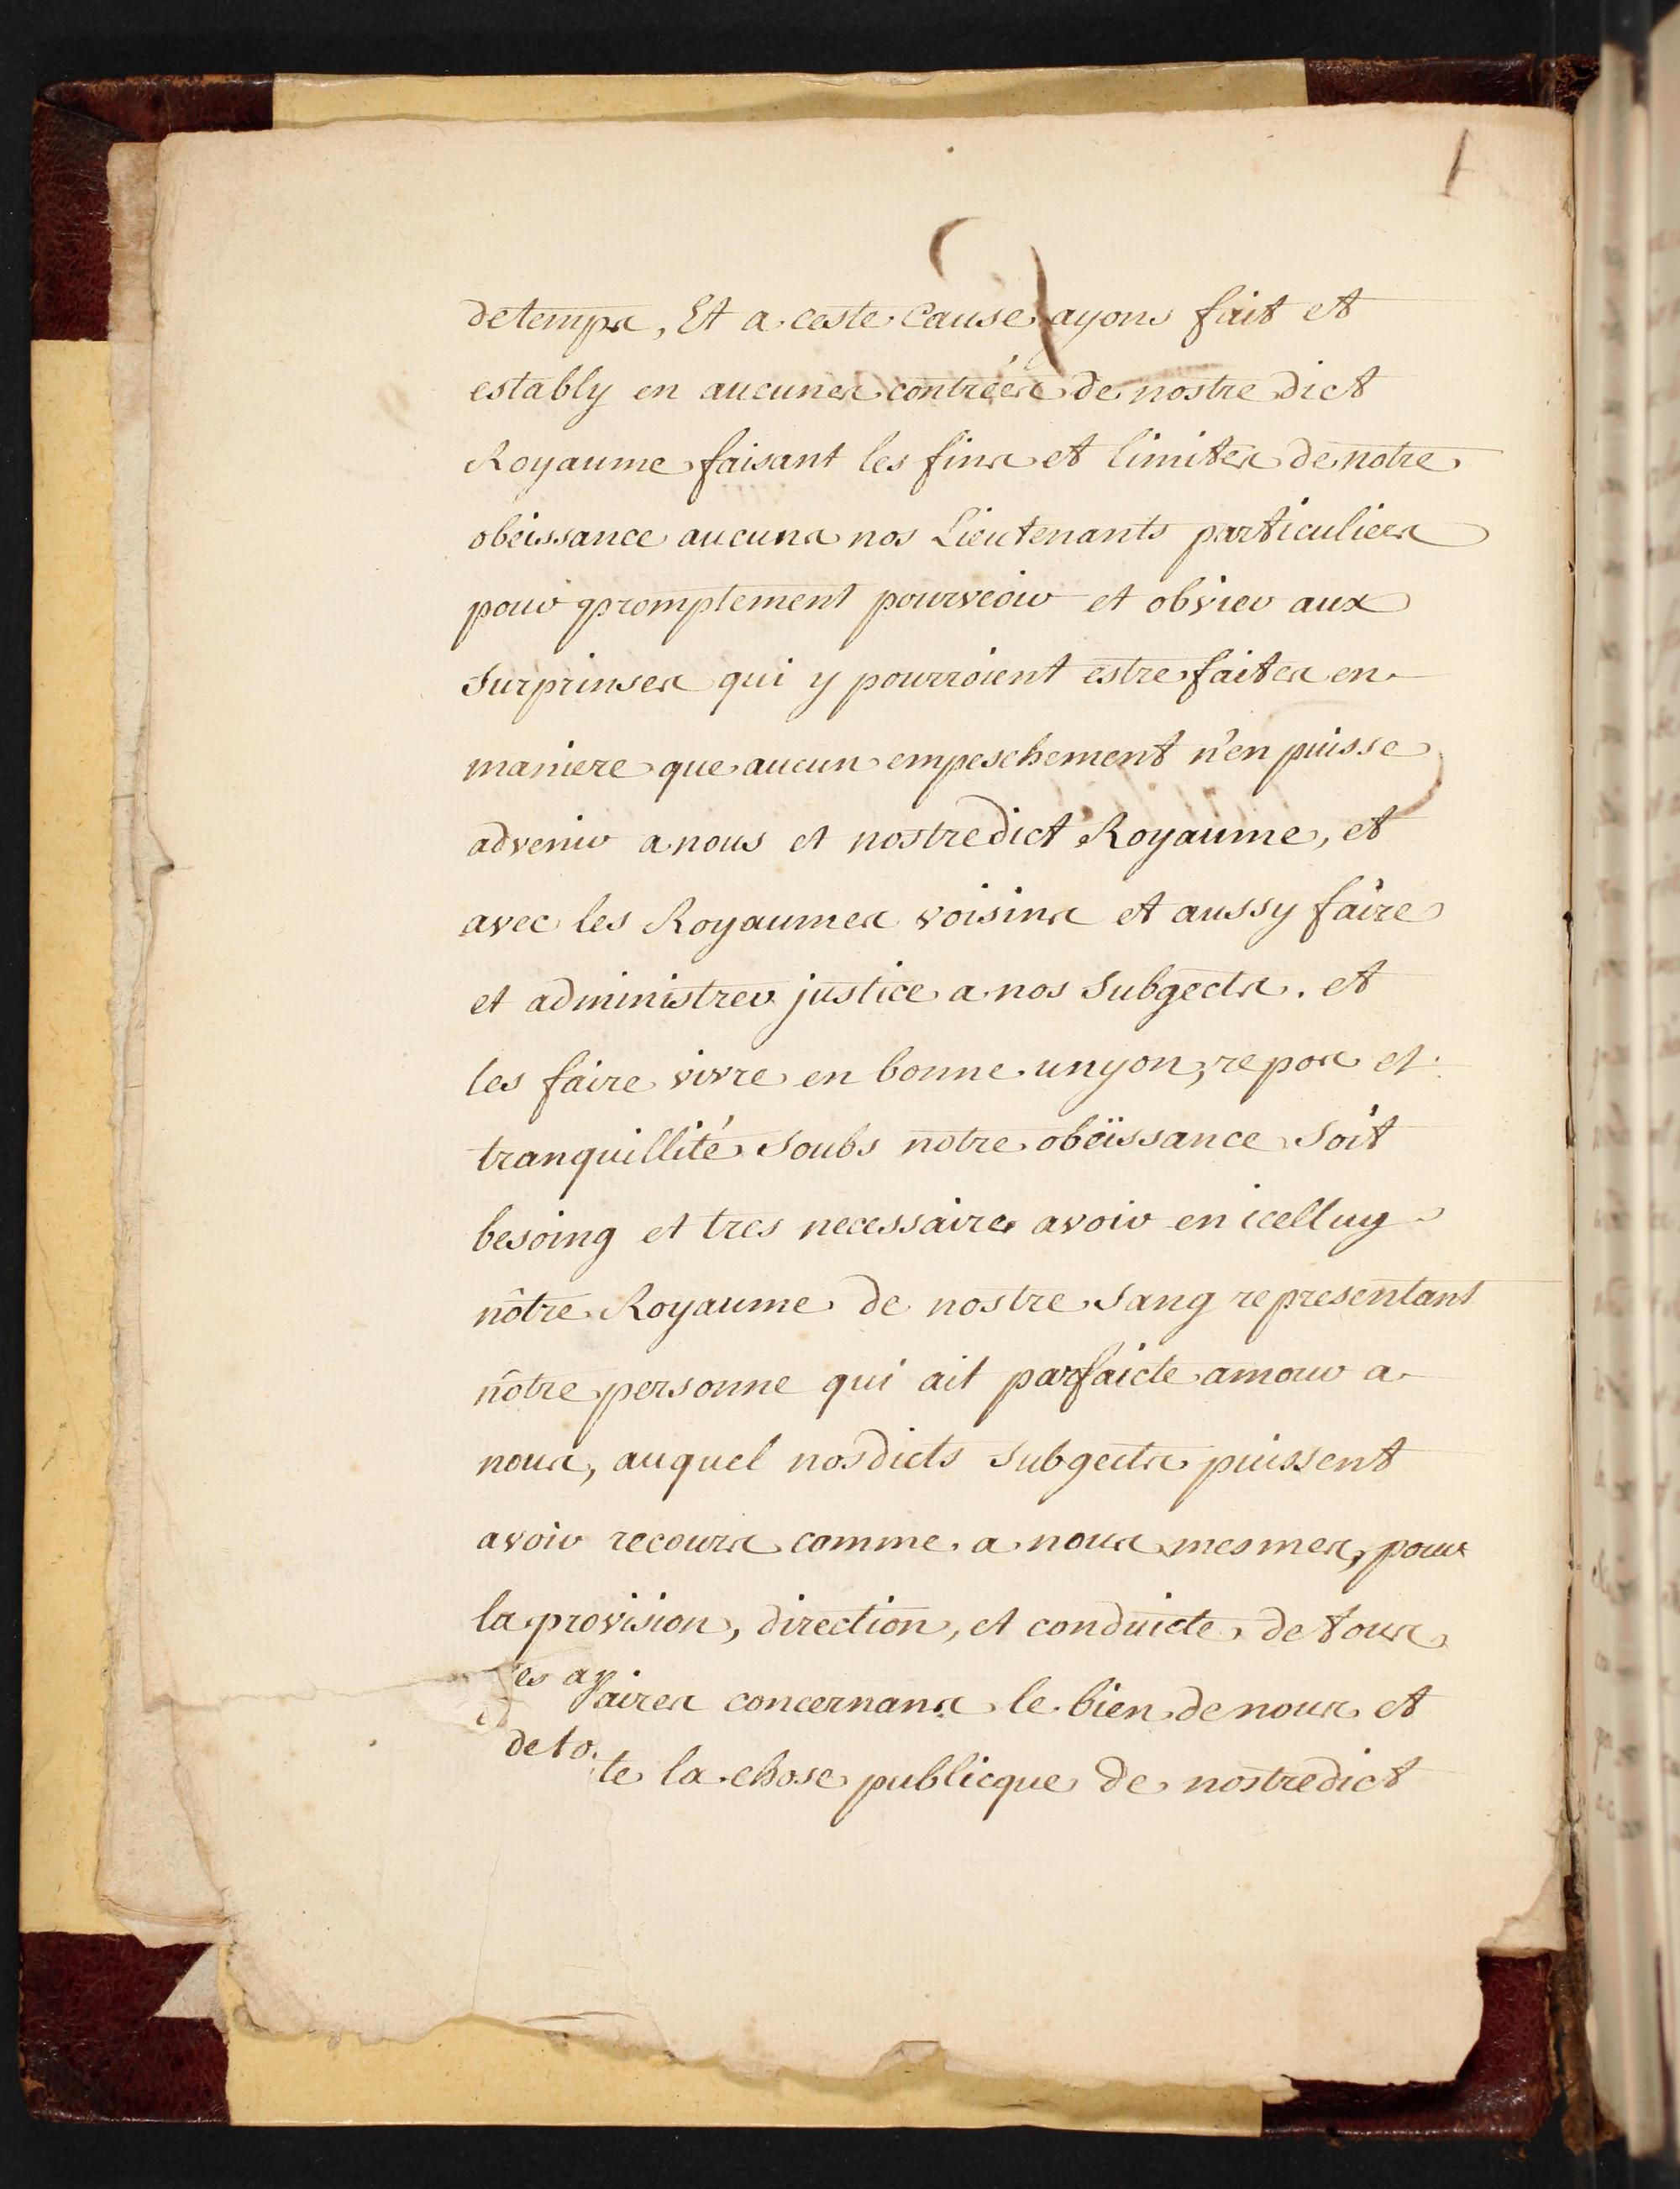 1
de temps, Et a ceste Cause ayons fait et
estably en aucunes contrées de nostre dict
Royaume faisant les fins et limites de notre
obëissance aucuns nos Lieutenants particuliers
pour promptement pourveoir et obvier aux
Surprinses qui y pourroient estre faites en
maniere que aucun empeschement n'en puisse
advenir a nous et nostredict Royaume, et
avec les Royaumes voisins et aussy faire
et administrer justice a nos Subgects. et
les faire vivre en bonne unyon, repos et
tranquillité Soubs notre obëissance Soit
besoing et tres necessaire avoir en icelluy
nôtre Royaume de nostre Sang representant
nôtre personne qui ait parfaicte amour a
nous, auquel nosdicts Subgects puissent
avoir recours comme a nous mesmes, pour
la provision, direction, et conduicte de tous
les affaires concernans le bien de nous et
de to te la chose publicque de nostredict